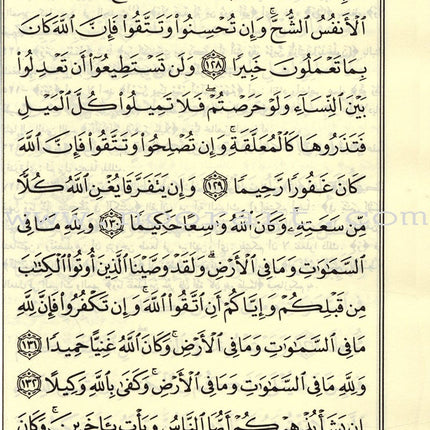 ٱلْأَنفُسُ ٱلشُّحَّ ۚ وَإِن تُحْسِنُوا۟ وَتَتَّقُوا۟ فَإِنَّ ٱللَّهَ كَانَ
بِمَا تَعْمَلُونَ خَبِيرًا ١٢٨ وَلَن تَسْتَطِيعُوٓا۟ أَن تَعْدِلُوا۟
بَيْنَ ٱلنِّسَآءِ وَلَوْ حَرَصْتُمْ ۖ فَلَا تَمِيلُوا۟ كُلَّ ٱلْمَيْلِ
فَتَذَرُوهَا كَٱلْمُعَلَّقَةِ ۚ وَإِن تُصْلِحُوا۟ وَتَتَّقُوا۟ فَإِنَّ ٱللَّهَ
كَانَ غَفُورًا رَّحِيمًا ١٢٩ وَإِن يَتَفَرَّقَا يُغْنِ ٱللَّهُ كُلًّا
مِّن سَعَتِهِۦ ۚ وَكَانَ ٱللَّهُ وَٰسِعًا حَكِيمًا ١٣٠ وَلِلَّهِ مَا فِى
ٱلسَّمَٰوَٰتِ وَمَا فِى ٱلْأَرْضِ ۗ وَلَقَدْ وَصَّيْنَا ٱلَّذِينَ أُوتُوا۟ ٱلْكِتَٰبَ
مِن قَبْلِكُمْ وَإِيَّاكُمْ أَنِ ٱتَّقُوا۟ ٱللَّهَ ۚ وَإِن تَكْفُرُوا۟ فَإِنَّ لِلَّهِ
مَا فِى ٱلسَّمَٰوَٰتِ وَمَا فِى ٱلْأَرْضِ ۚ وَكَانَ ٱللَّهُ غَنِيًّا حَمِيدًا ١٣١
وَلِلَّهِ مَا فِى ٱلسَّمَٰوَٰتِ وَمَا فِى ٱلْأَرْضِ ۚ وَكَفَىٰ بِٱللَّهِ وَكِيلًا ١٣٢
إِن يَشَأْ يُذْهِبْكُمْ أَيُّهَا ٱلنَّاسُ وَيَأْتِ بِـَٔاخَرِينَ ۚ وَكَانَ